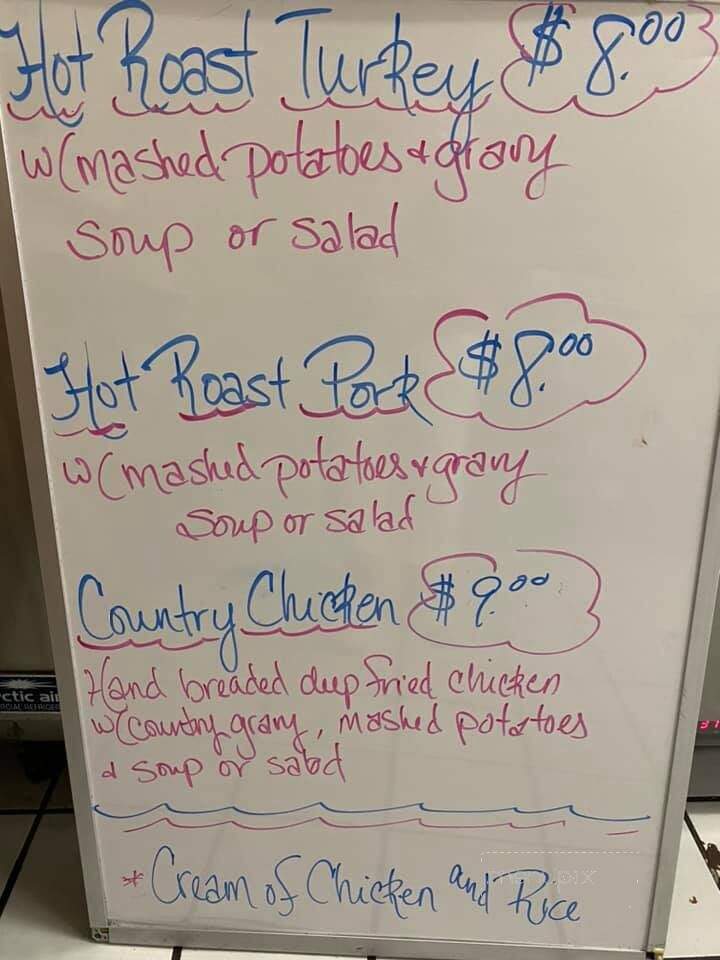 Hot Roast Turkey $8.00
w/mashed potatoes & gravy
soup or salad
Hot Roast Pork $8.00
w/mashed potatoes & gravy
soup or salad
Country Chicken $9.00
Hand breaded deep fried chicken
w/country gravy, mashed potatoes
& soup or salad
ctic air
* Cream of Chicken and Rice